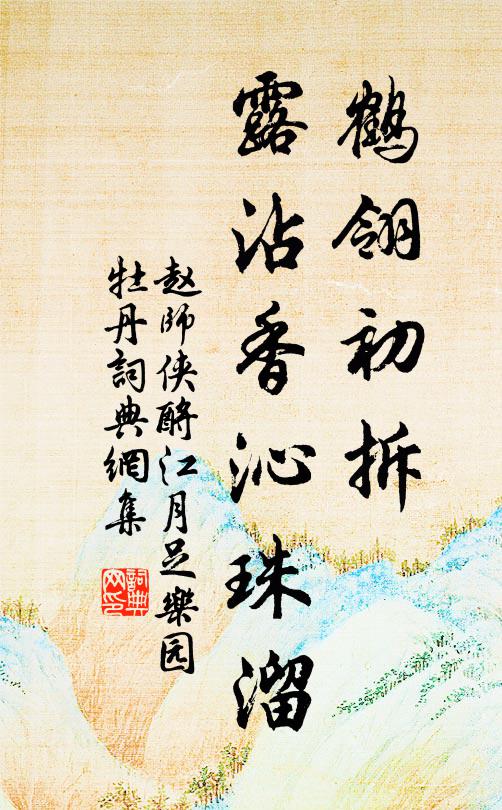 鹤翎初拆
露沾香沁珠溜
赵师侠酹江月足樂园
牡丹詞典網集
詞典网印